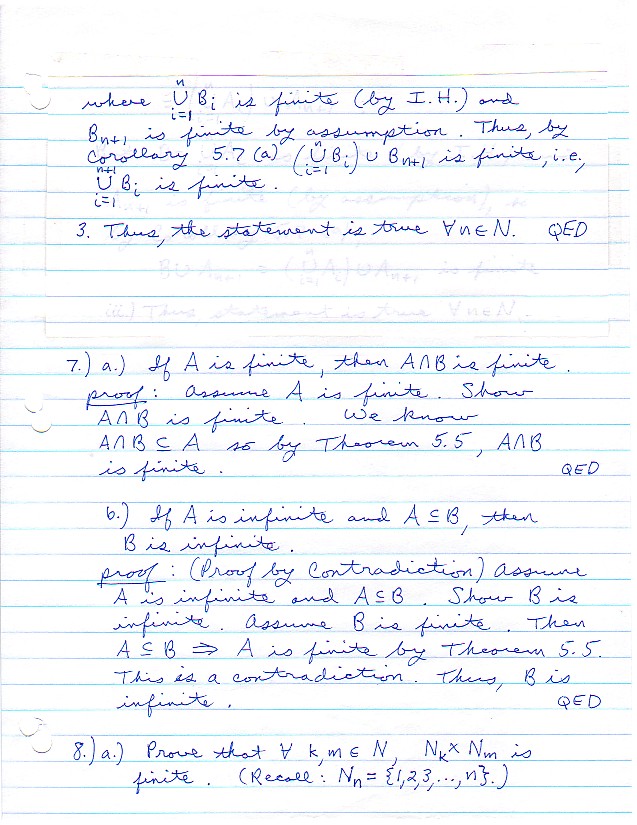 where ⋃ⁿᵢ₌₁ Bᵢ is finite (by I.H.) and
Bₙ₊₁ is finite by assumption. Thus, by
Corollary 5.7(a) (⋃ⁿᵢ₌₁ Bᵢ) ∪ Bₙ₊₁ is finite, i.e.,
⋃ⁿ⁺¹ᵢ₌₁ Bᵢ is finite.
3. Thus, the statement is true ∀n∈N. QED
B∪Aₙ₊₁ = (⋃ⁿᵢ₌₁ Aᵢ)∪Aₙ₊₁ is finite
iii.) Thus statement is true ∀n∈N.
7.) a.) If A is finite, then A∩B is finite.
proof: Assume A is finite. Show
A∩B is finite. We know
A∩B ⊆ A so by Theorem 5.5, A∩B
is finite. QED
b.) If A is infinite and A⊆B, then
B is infinite.
proof: (Proof by Contradiction) Assume
A is infinite and A⊆B. Show B is
infinite. Assume B is finite. Then
A⊆B ⇒ A is finite by Theorem 5.5.
This is a contradiction. Thus, B is
infinite. QED
8.) a.) Prove that ∀ k,m∈N, Nₖ×Nₘ is
finite. (Recall: Nₙ = {1,2,3,...,n}.)